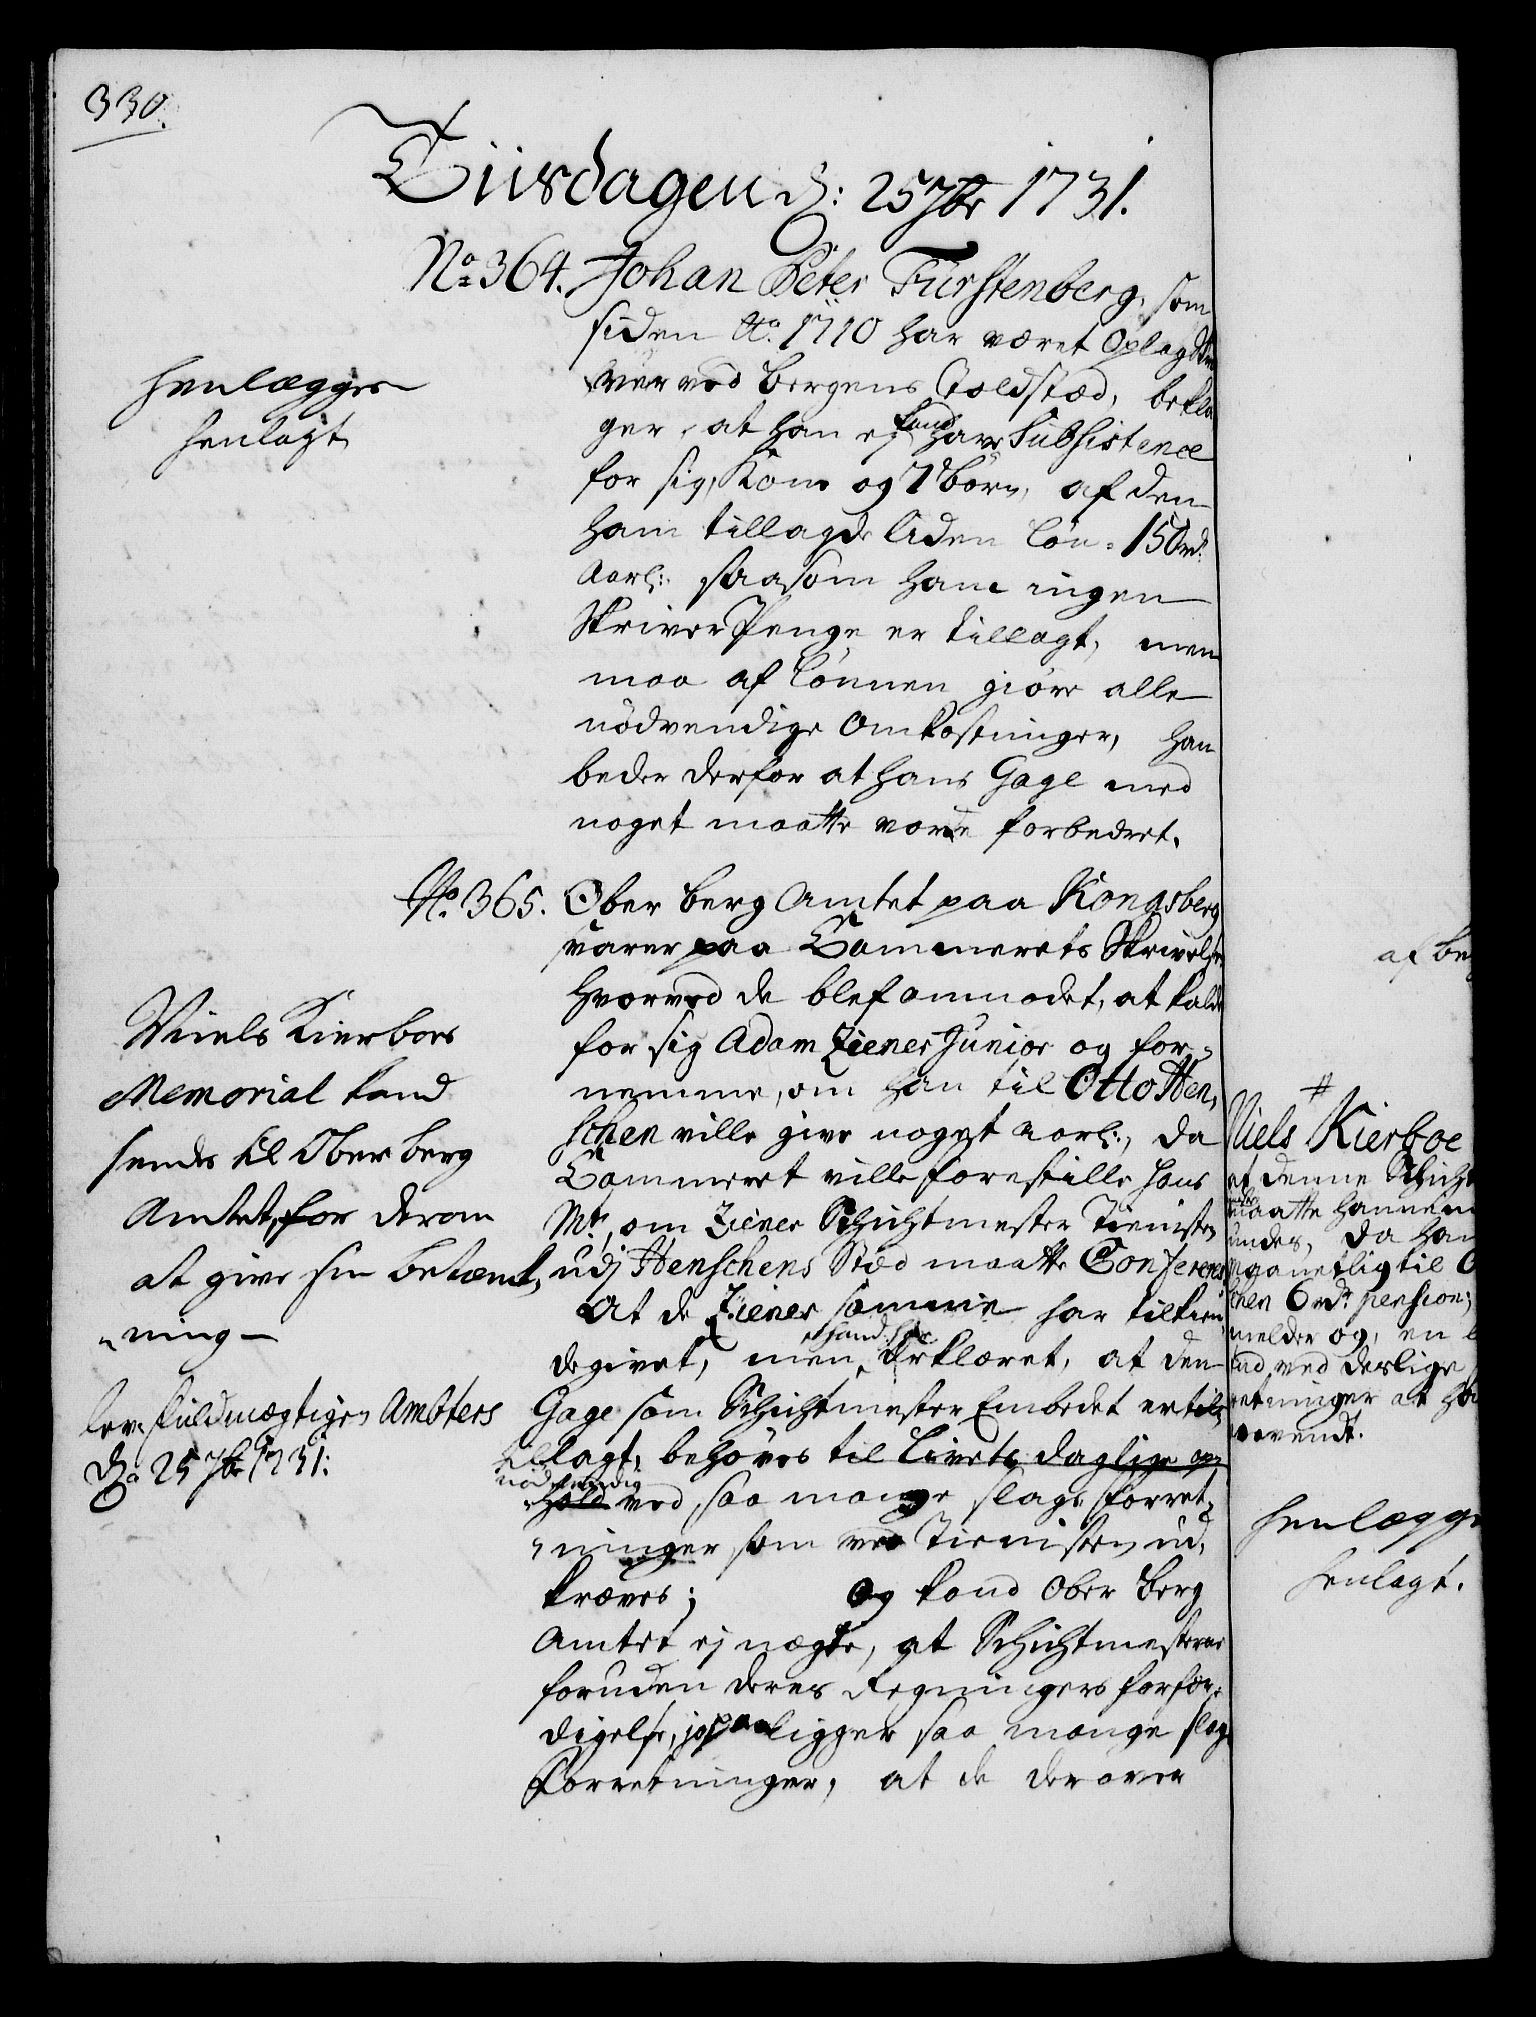 330.
Tiisdagen d: 25 7br 1731.
No 364. Johan Peter Fürstenberg, som
siden Ao 1710 har været Oplag Skri
ver ved Bergens Toldstæd, bekla
ger, at han ej kand have Subsistence
for sig, Kone og 7 börn, af den
ham tillagde liden lön = 150 rd.
Aarl: saasom ham ingen
Skriver Penge er tillagt, men
maa af lönnen giöre alle
nödvendige Omkostninger, han
beder derfor at hans Gage med
noget maatte vorde forbedret.
henlægges
henlagt
No. 365. Ober Berg Amtet paa Kongsberg
svarer paa Cammerets Skrivelse,
hvorved de blef anmodet, at kalde
for sig Adam Ziener Junior og for-
nemme, om han til Otto Hen,
schen ville give noget aarl:, da
Cammeret ville forestille hans
Mt:, om Ziener Schichtmester Tienisten
udj Henschens Stæd maatte Conferere,
At de Ziener samme har tilkien,
degivet, men hand har Erklæret, at den
Gage som Schichtmester Embedet er til,
tillagt, behöves til Livets daglige op,
nödvendig
hold ved saa mange slags forret,
ninger som ved Tienisten ud,
kræves; Og kand Ober Berg
Amtet ej nægte, at Schichtmesterne
foruden deres Regningers forfær,
digelse, jo paaligger saa mange slag
Forretninger, at de derover
Niels Kierboes
Memorial kand
sendes til Ober Berg
Amtet, for derom
at give sin betænk,
ning
lev. fuldmægtigen Ambters
d: 25 7br 1731:
af be
#
Niels Kierboe
at denne Schicht
maatte hannem
undes, da han
maanetlig til O
chen 6 rdr pension;
melder og, en
ved deslige
retninger at ha
vendt.
henlægge
henlagt.